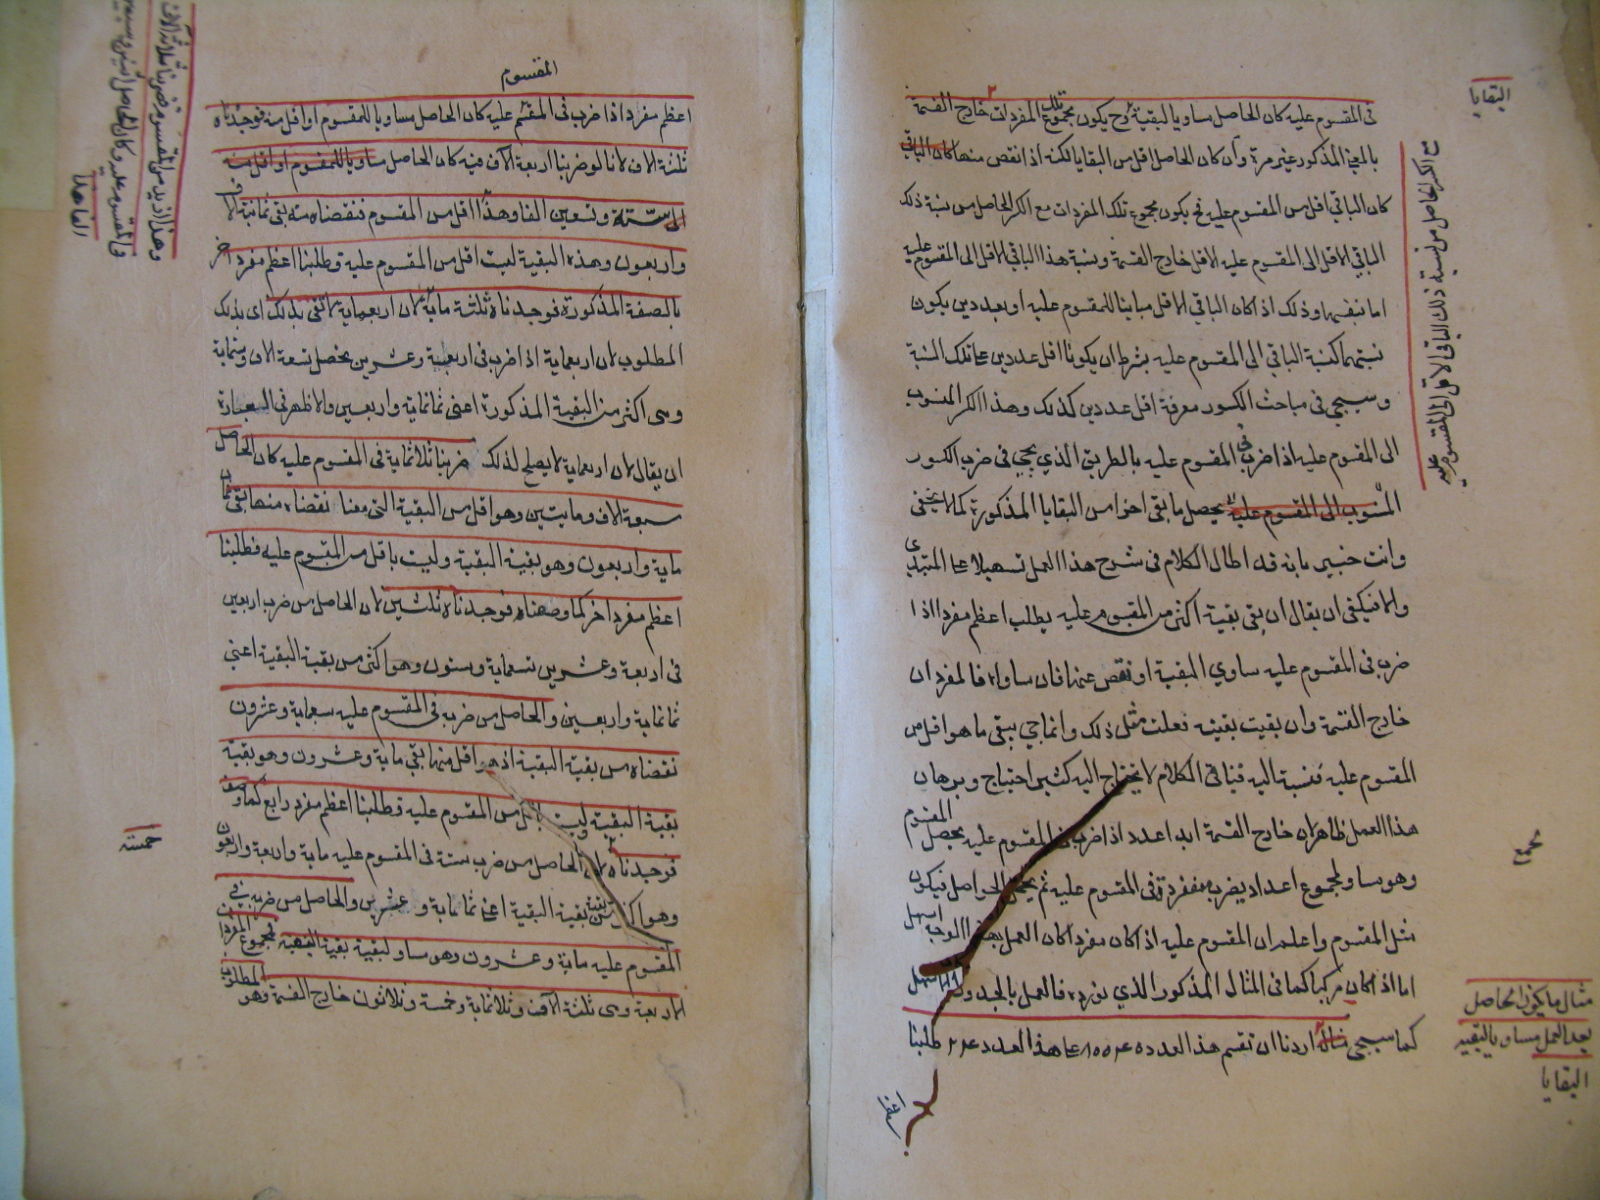 البقايا
فى المقسوم عليه كان الحاصل مساويا للبقية وح يكون مجموع تلك المفردات خارج القسمة
بالمعنى المذكور غير مرة وان كان الحاصل اقل من البقايا لكنه اذا نقص منها كان الباقى
كان الباقى اقل من المقسوم عليه فح يكون مجموع تلك المفردات مع الكسر الحاصل من نسبة ذلك
الباقى الاقل الى المقسوم عليه الاقل خارج القسمة ونسبة هذا الباقى الاقل الى المقسوم عليه
اما بنفسها وذلك اذا كان الباقى الاقل مباينا للمقسوم عليه او بعددين يكون
نسبتهما كنسبة الباقى الى المقسوم عليه بشرط ان يكونا اقل عددين على تلك النسبة
وسيجى فى مباحث الكسور معرفة اقل عددين كذلك وهذا الكسر المنسوب
الى المقسوم عليه اذا ضرب فى المقسوم عليه بالطريق الذي يجى فى ضرب الكسور
المنسوب الى المقسوم عليه يحصل ما بقى اخرا من البقايا المذكورة كما لا يخفى
وانت خبير بانه قد اطال الكلام فى شرح هذا العمل تسهيلا على المبتدى
والا فيكفى ان يقال ان بقى بقية اكثر من المقسوم عليه يطلب اعظم مفرد اذا
ضرب فى المقسوم عليه ساوي البقية او نقص عنها فان ساواه فالمفردان
خارج القسمة وان بقيت بقية فعلت مثل ذلك وانما يبقى ما هو اقل من
المقسوم عليه فنسبة اليه فباقى الكلام لا يحتاج اليه كثير احتياج وبرهان
هذا العمل ظاهر ان خارج القسمة ابدا عدد اذا ضرب فى المقسوم عليه يحصل المقسوم
وهو مساو لمجموع اعداد يضرب مفردة فى المقسوم عليه ثم يجمع الحواصل فيكون
مثل المقسوم واعلم ان المقسوم عليه اذا كان مفردا كان العمل بهذا الوجه اسهل
اما اذا كان مركبا كما فى المثال المذكور الذي نورده فالعمل بالجدول اسهل
كما سيجى مثاله اردنا ان نقسم هذا العدد على هذا العدد ٢٤ طلبنا
مع الكسر الحاصل من نسبة ذلك الباقى الاقل الى المقسوم عليه
مجمع
مثال ما يكون الحاصل
بعد العمل مساويا لبقية
البقايا
المقسوم
اعظم مفرد اذا ضرب فى المقسم عليه كان الحاصل مساويا للمقسوم او اقل منه فوجدناه
ثلثة الاف لانا لو ضربنا اربعة الآف فيه كان الحاصل مساويا للمقسوم او اقل منه
ستة وتسعين الفا وهذا اقل من المقسوم فنقصناه منه بقى ثمانية الاف
واربعون وهذه البقية ليست اقل من المقسوم عليه وطلبنا اعظم مفرد اخر
بالصفة المذكورة فوجدناه ثلثة مائة لان اربعماية لا تفى بذلك اى بذلك
المطلوب لان اربعماية اذا ضرب فى اربعة وعشرين يحصل تسعة الاف وستماية
وهى اكثر من البقية المذكورة اعنى ثمانماية واربعين والاظهر فى العبارة
ان يقال لان اربعماية لا يصلح لذلك ضربنا ثلاثماية فى المقسوم عليه كان الحاصل
سبعة الاف ومايتين وهو اقل من البقية التى معنا نقصناه منها بقى ثمان
ماية واربعون وهو بقية البقية وليست باقل من المقسوم عليه فطلبنا
اعظم مفرد اخر كما وصفناه فوجدناه ثلثين لان الحاصل من ضرب اربعين
فى اربعة وعشرين تسعماية وستون وهو اكثر من بقية البقية اعنى
ثمانماية واربعين والحاصل من ضربه فى المقسوم عليه سبعماية وعشرون
نقصناه من بقية البقية اذ هو اقل منها بقى ماية وعشرون وهو بقية
بقية البقية وليست باقل من المقسوم عليه فطلبنا اعظم مفرد رابع كما وصفنا
فوجدناه لان الحاصل من ضرب ستة فى المقسوم عليه ماية واربعة واربعون
وهو اكثر من بقية بقية البقية اعنى ماية وعشرين والحاصل من ضربه فى
المقسوم عليه ماية وعشرون وهو مساو لبقية بقية البقية فمجموع المفردات
الاربعة وهى ثلثة الآف وثلاثماية وخمسة وثلاثون خارج القسمة وهو المطلوب
خمسة